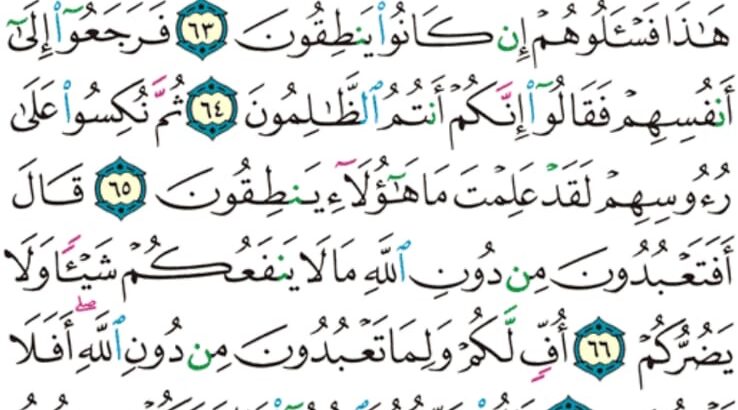 هَٰذَا فَسْـَٔلُوهُمْ إِن كَانُوا۟ يَنطِقُونَ ٦٣ فَرَجَعُوٓا۟ إِلَىٰٓ
أَنفُسِهِمْ فَقَالُوٓا۟ إِنَّكُمْ أَنتُمُ ٱلظَّٰلِمُونَ ٦٤ ثُمَّ نُكِسُوا۟ عَلَىٰ
رُءُوسِهِمْ لَقَدْ عَلِمْتَ مَا هَٰٓؤُلَآءِ يَنطِقُونَ ٦٥ قَالَ
أَفَتَعْبُدُونَ مِن دُونِ ٱللَّهِ مَا لَا يَنفَعُكُمْ شَيْـًٔا وَلَا
يَضُرُّكُمْ ٦٦ أُفٍّ لَّكُمْ وَلِمَا تَعْبُدُونَ مِن دُونِ ٱللَّهِ ۖ أَفَلَا